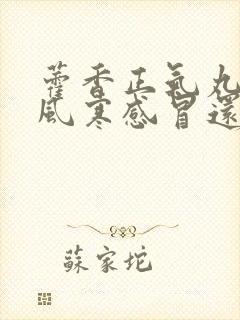 藿香正氣丸
風寒感冒還
蘇家坨